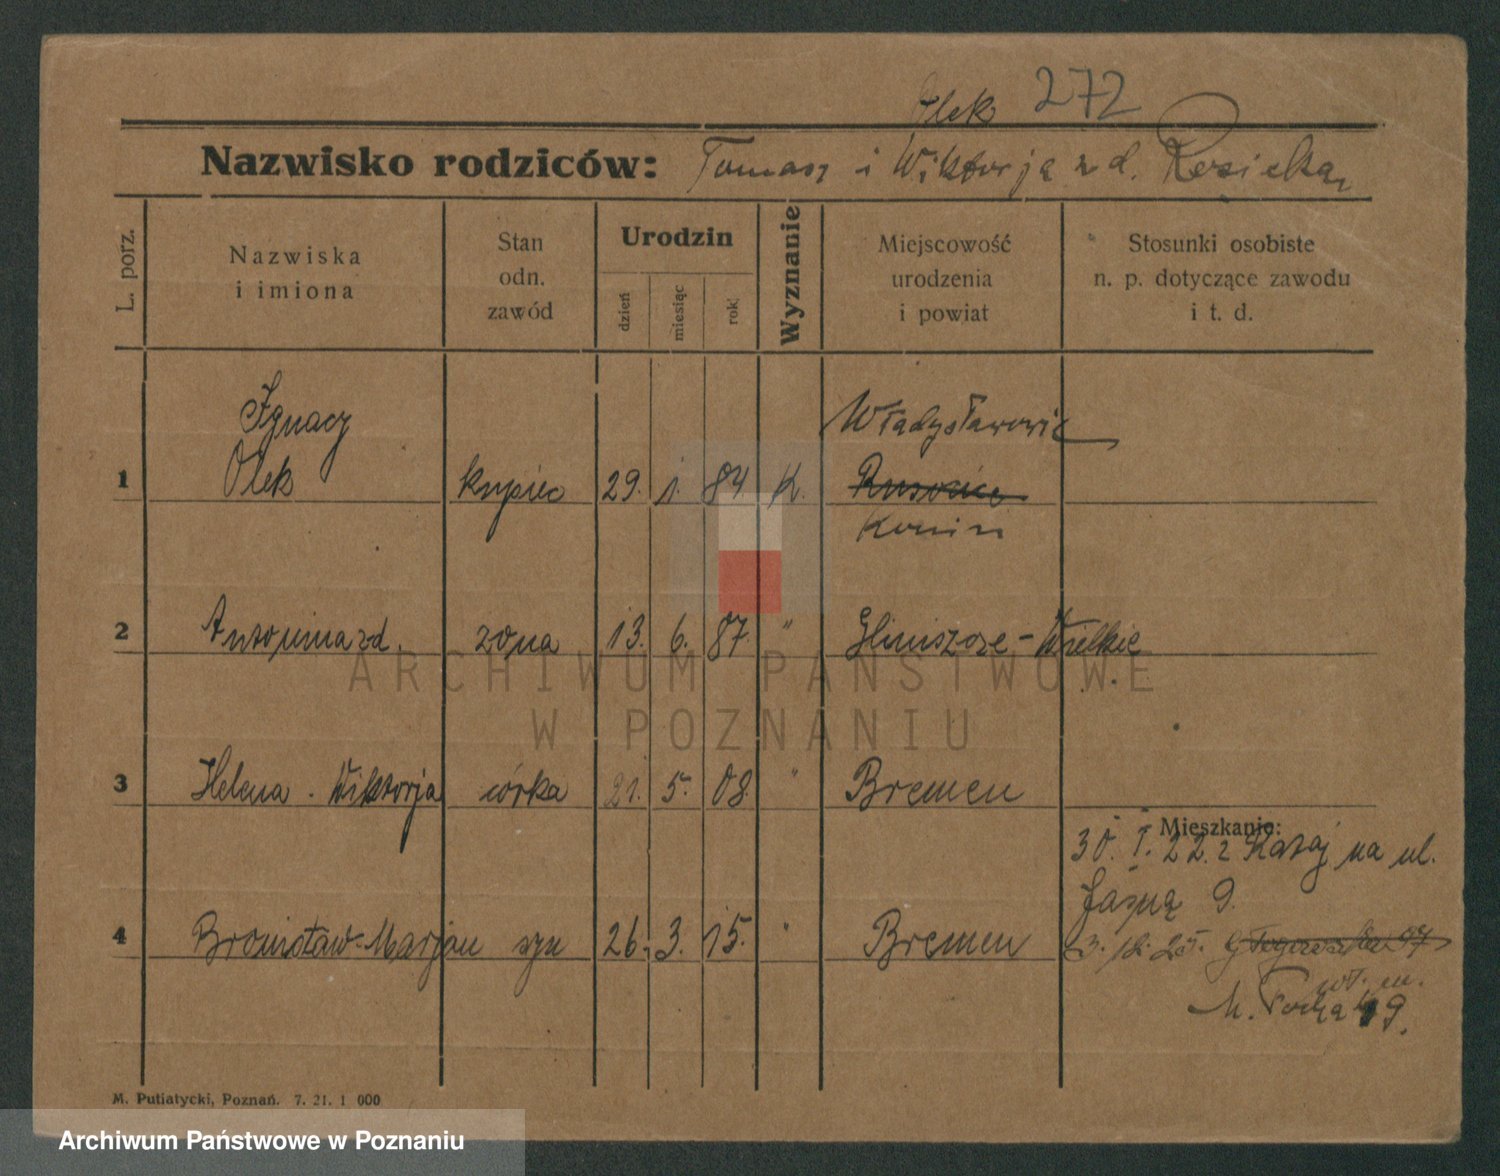 Olek 272
Nazwisko rodziców: Tomasz i Wiktorja z d.
L. porz.
Nazwiska
i imiona
Stan
odn.
zawód
Urodzin
dzień
miesiąc
rok
Wyznanie
Miejscowość
urodzenia
i powiat
Stosunki osobiste
n. p. dotyczące zawodu
i t. d.
Ignacy Władysławowic
1 Olek kupiec 29. 1. 84 K.
Konin
2 Antonina zd. zona 13. 6. 87. " Gliniszcze - Wielkie
3 Helena - Wiktorja córka 21. 5. 08 " Bremen
Mieszkanie:
30. I. 22. z na ul.
Jasną 9.
4 Bronisław-Marjan syn 26. 3. 15. " Bremen
wł. m.
M. Focha 49.
M. Putiatycki, Poznań. 7. 21. 1 000
ARCHIWUM PAŃSTWOWE
W POZNANIU
Archiwum Państwowe w Poznaniu